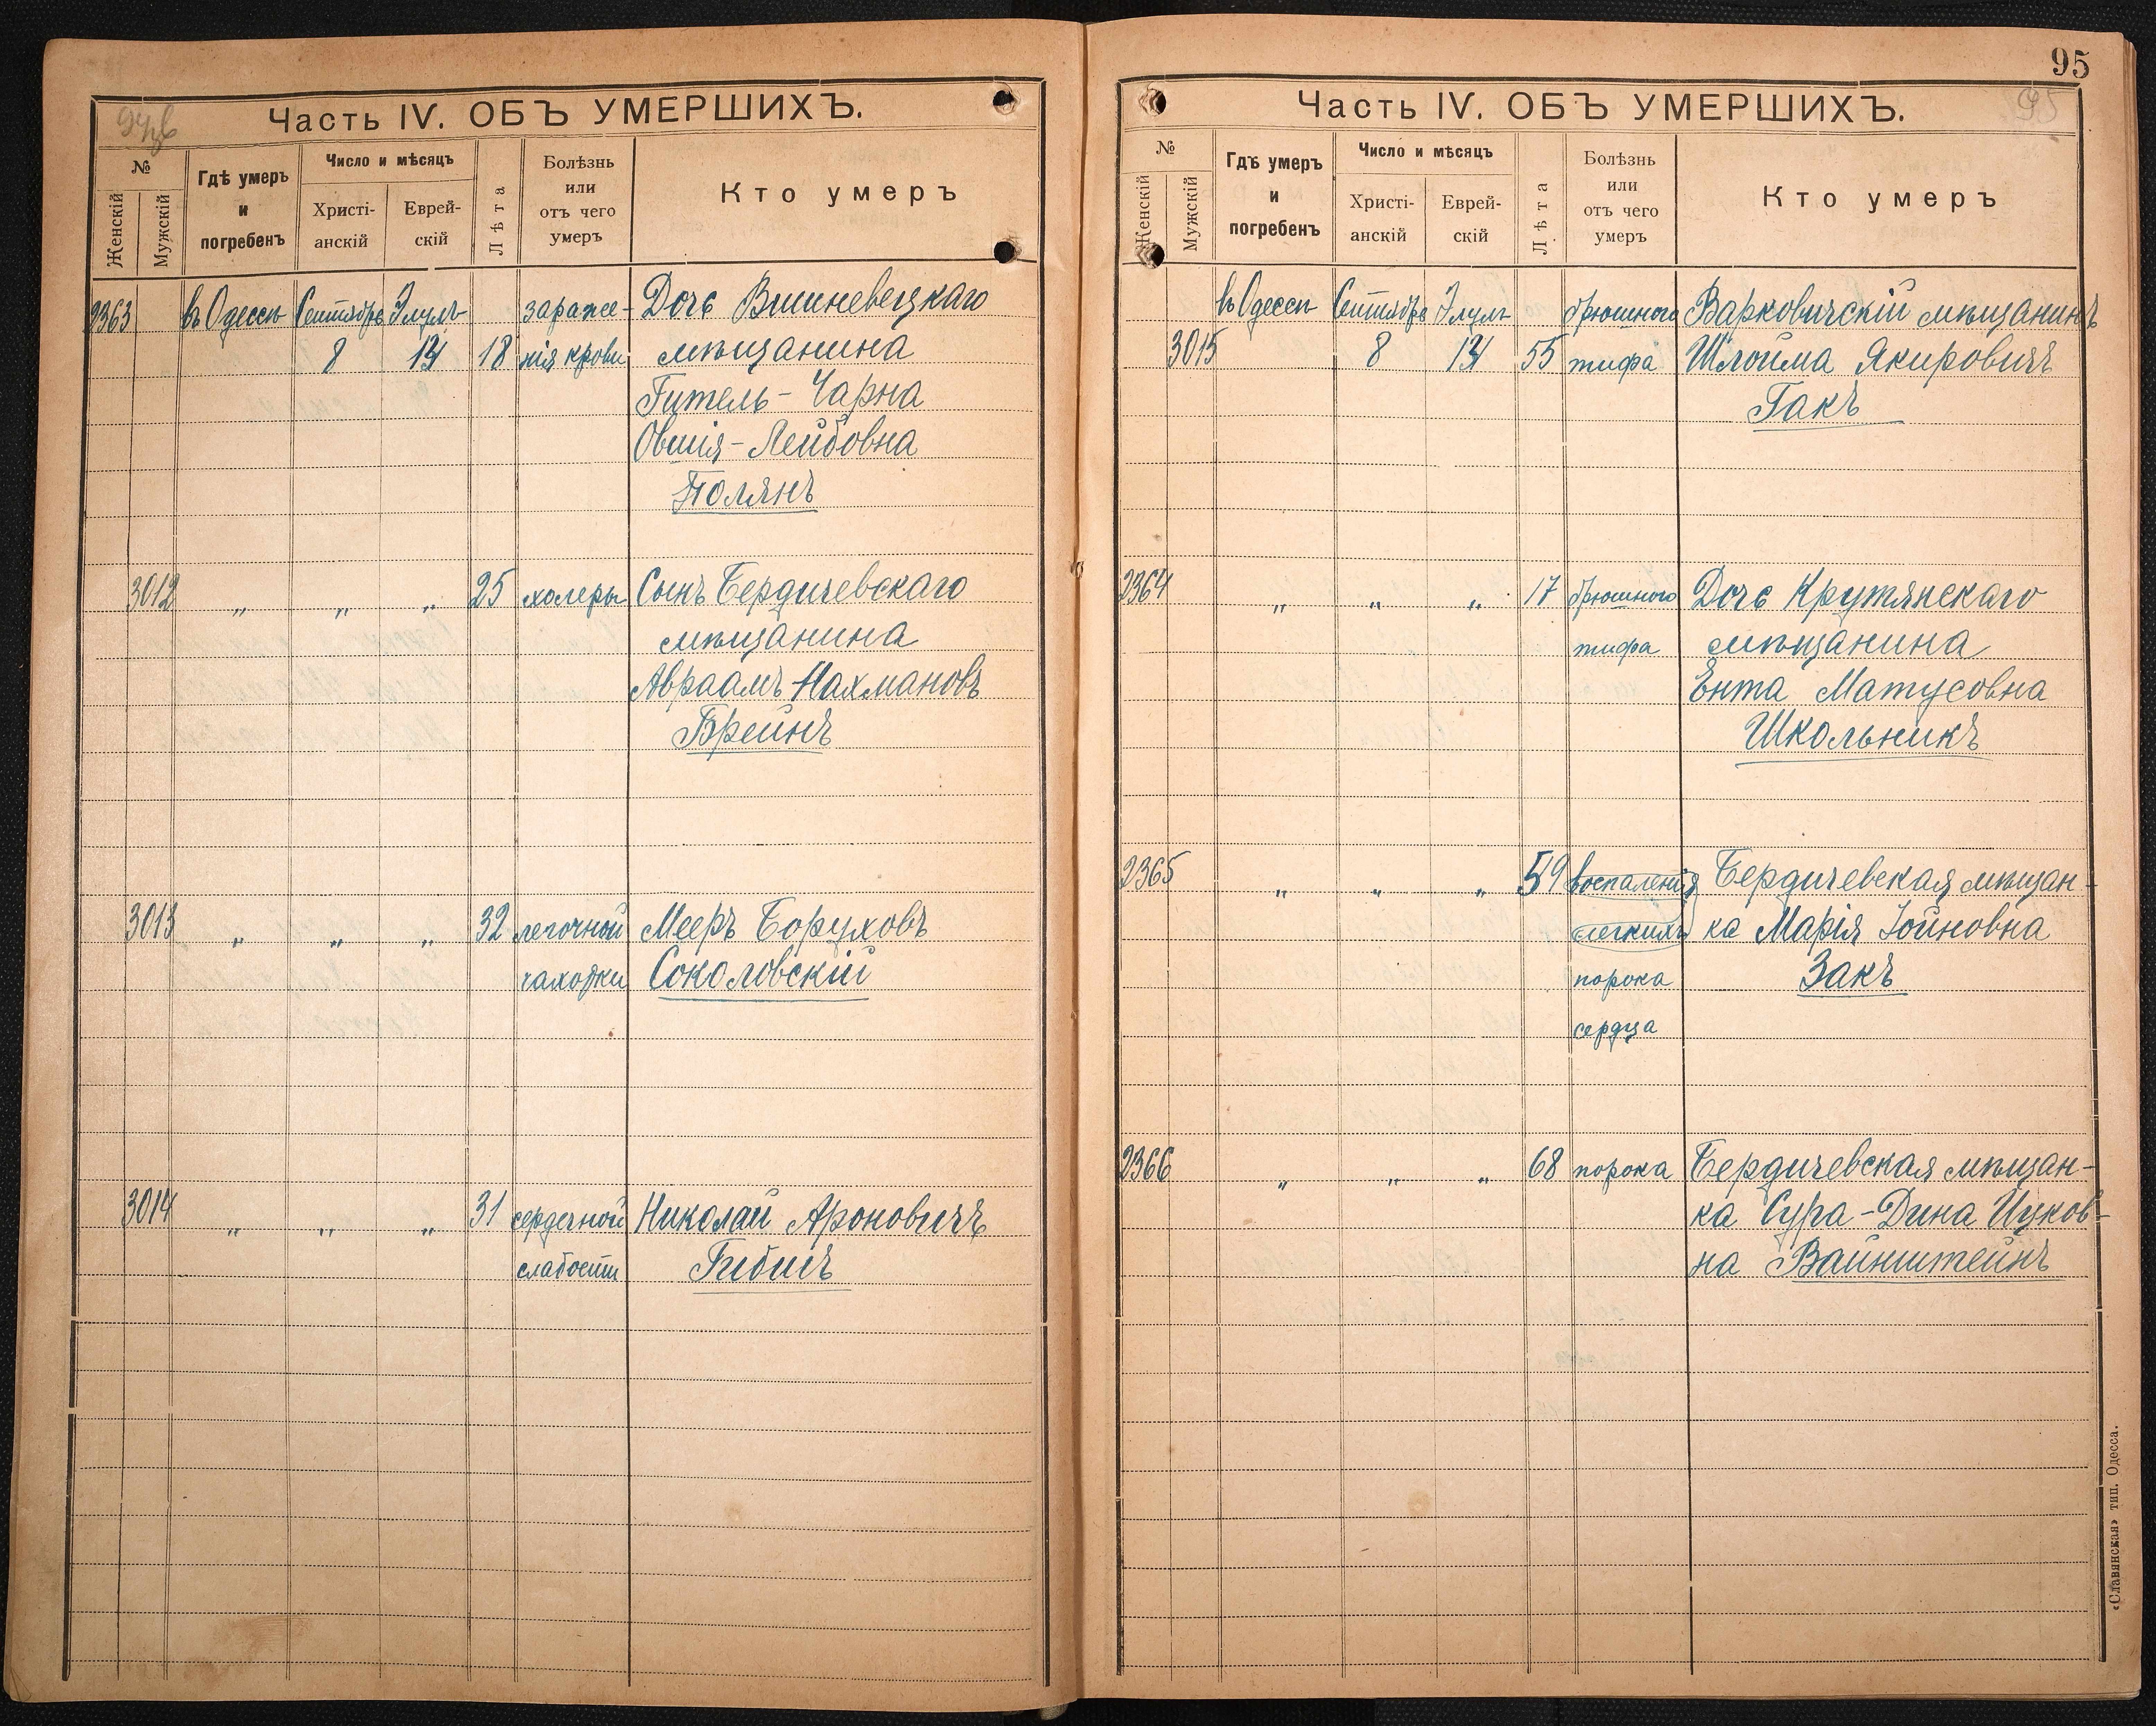 Часть IV. ОБЪ УМЕРШИХЪ.
№
Женскій
Мужскій
Гдѣ умеръ
и
погребенъ
Число и мѣсяцъ
Христі-
анскій
Еврей-
скій
Лѣта
Болѣзнь
или
отъ чего
умеръ
Кто умеръ
2363 въ Одессѣ Сентябрь Элулъ зараже- Дочь Вишневецкаго
8 18 нія крови мѣщанина
Гитель-Чарна
Овшія-Лейбовна
Полянъ
3012 " " " 25 холеры Сынъ Бердичевскаго
мѣщанина
Авраамъ Нахмановъ
Брейнъ
3013 " " " 32 легочной Мееръ Боруховъ
чахотки Соколовскій
3014 " " " 31 сердечной Николай Ароновичъ
слабости
95
95
Часть IV. ОБЪ УМЕРШИХЪ.
№
Женскій
Мужскій
Гдѣ умеръ
и
погребенъ
Число и мѣсяцъ
Христі-
анскій
Еврей-
скій
Лѣта
Болѣзнь
или
отъ чего
умеръ
Кто умеръ
въ Одессѣ Сентябрь Элулъ брюшного Варковичскій мѣщанинъ
3015 8 55 тифа Шлойма Якировичъ
Гакъ
2364 " " " 17 брюшного Дочь Крутянскаго
тифа мѣщанина
Ента Матусовна
Школьникъ
2365 " " " 59 воспаленія Бердичевская мѣщан-
легкихъ ка Марія Іойновна
порока Закъ
сердца
2366 " " " 68 порока Бердичевская мѣщан-
ка Сура-Дина Ицков-
на Вайнштейнъ
«Славянская» тип. Одесса.